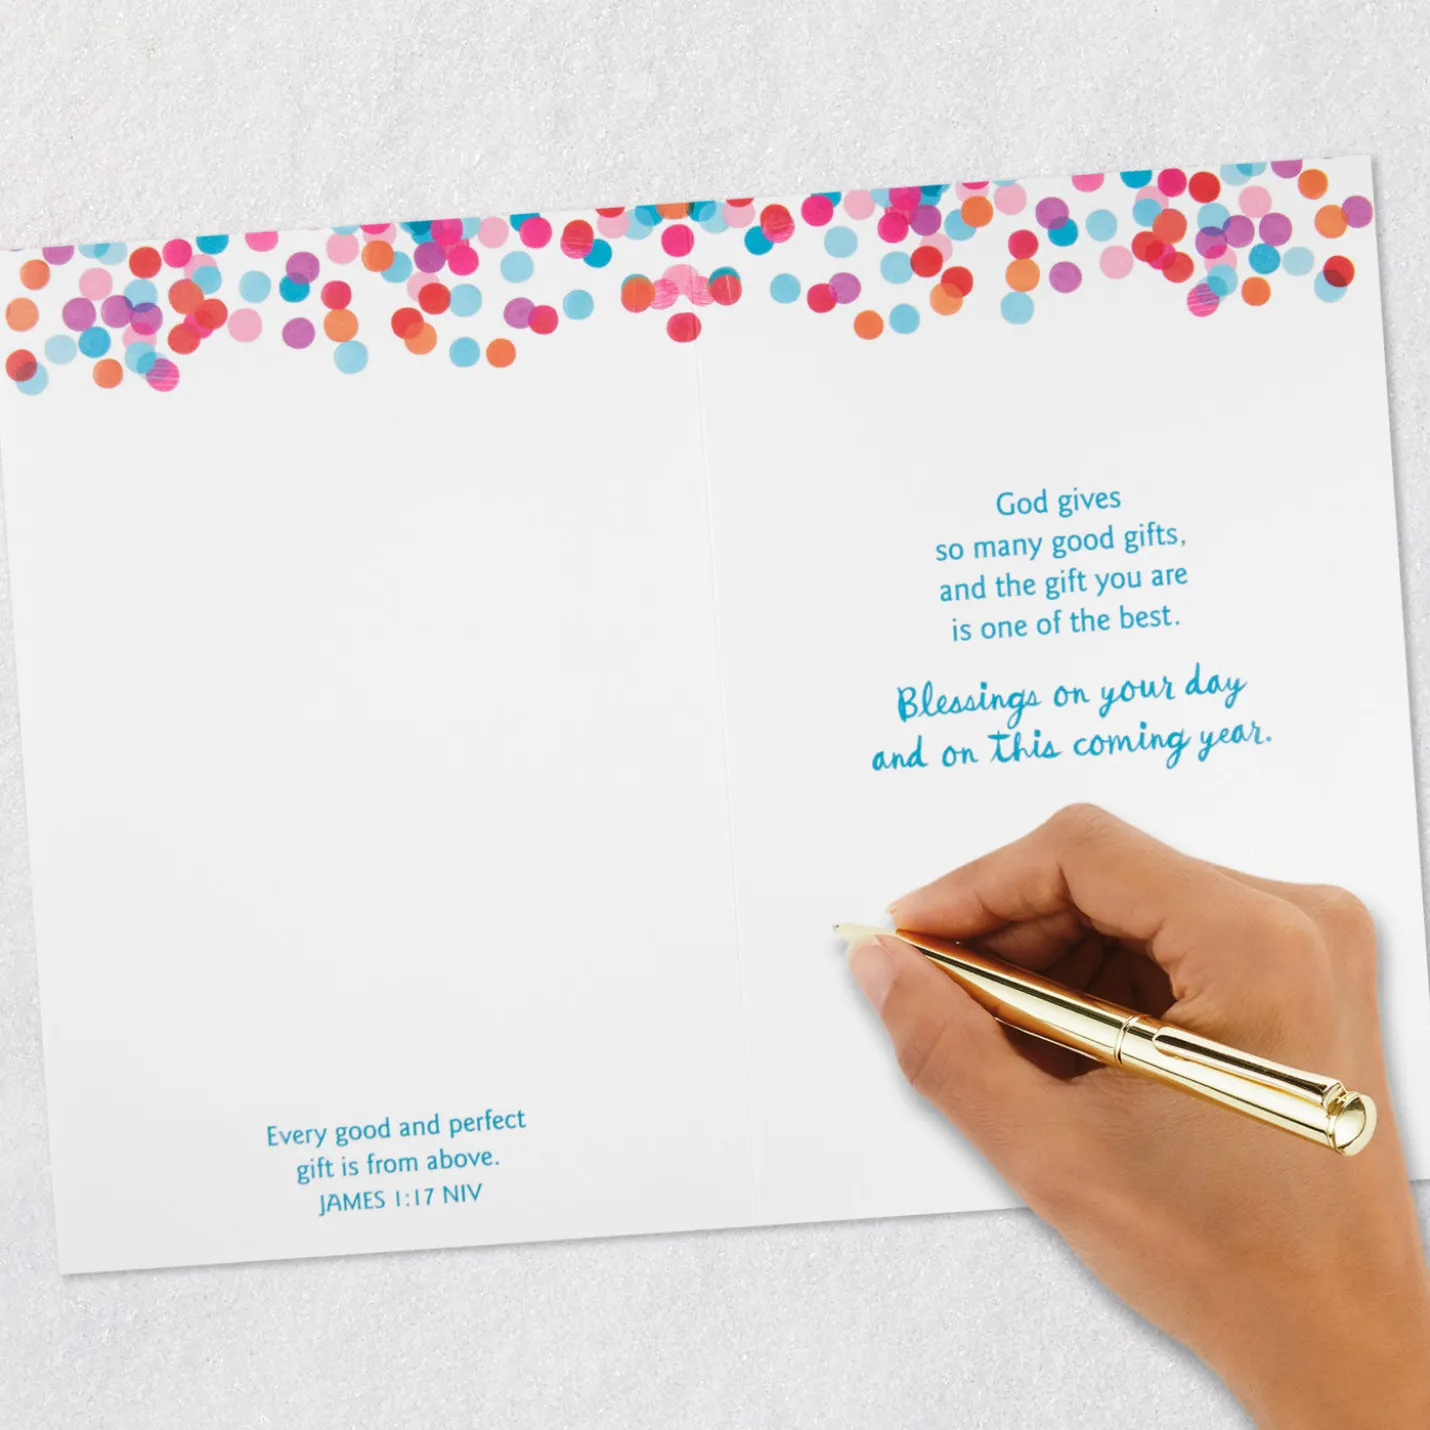 Every good and perfect
gift is from above.
JAMES 1:17 NIV
God gives
so many good gifts,
and the gift you are
is one of the best.
Blessings on your day
and on this coming year.